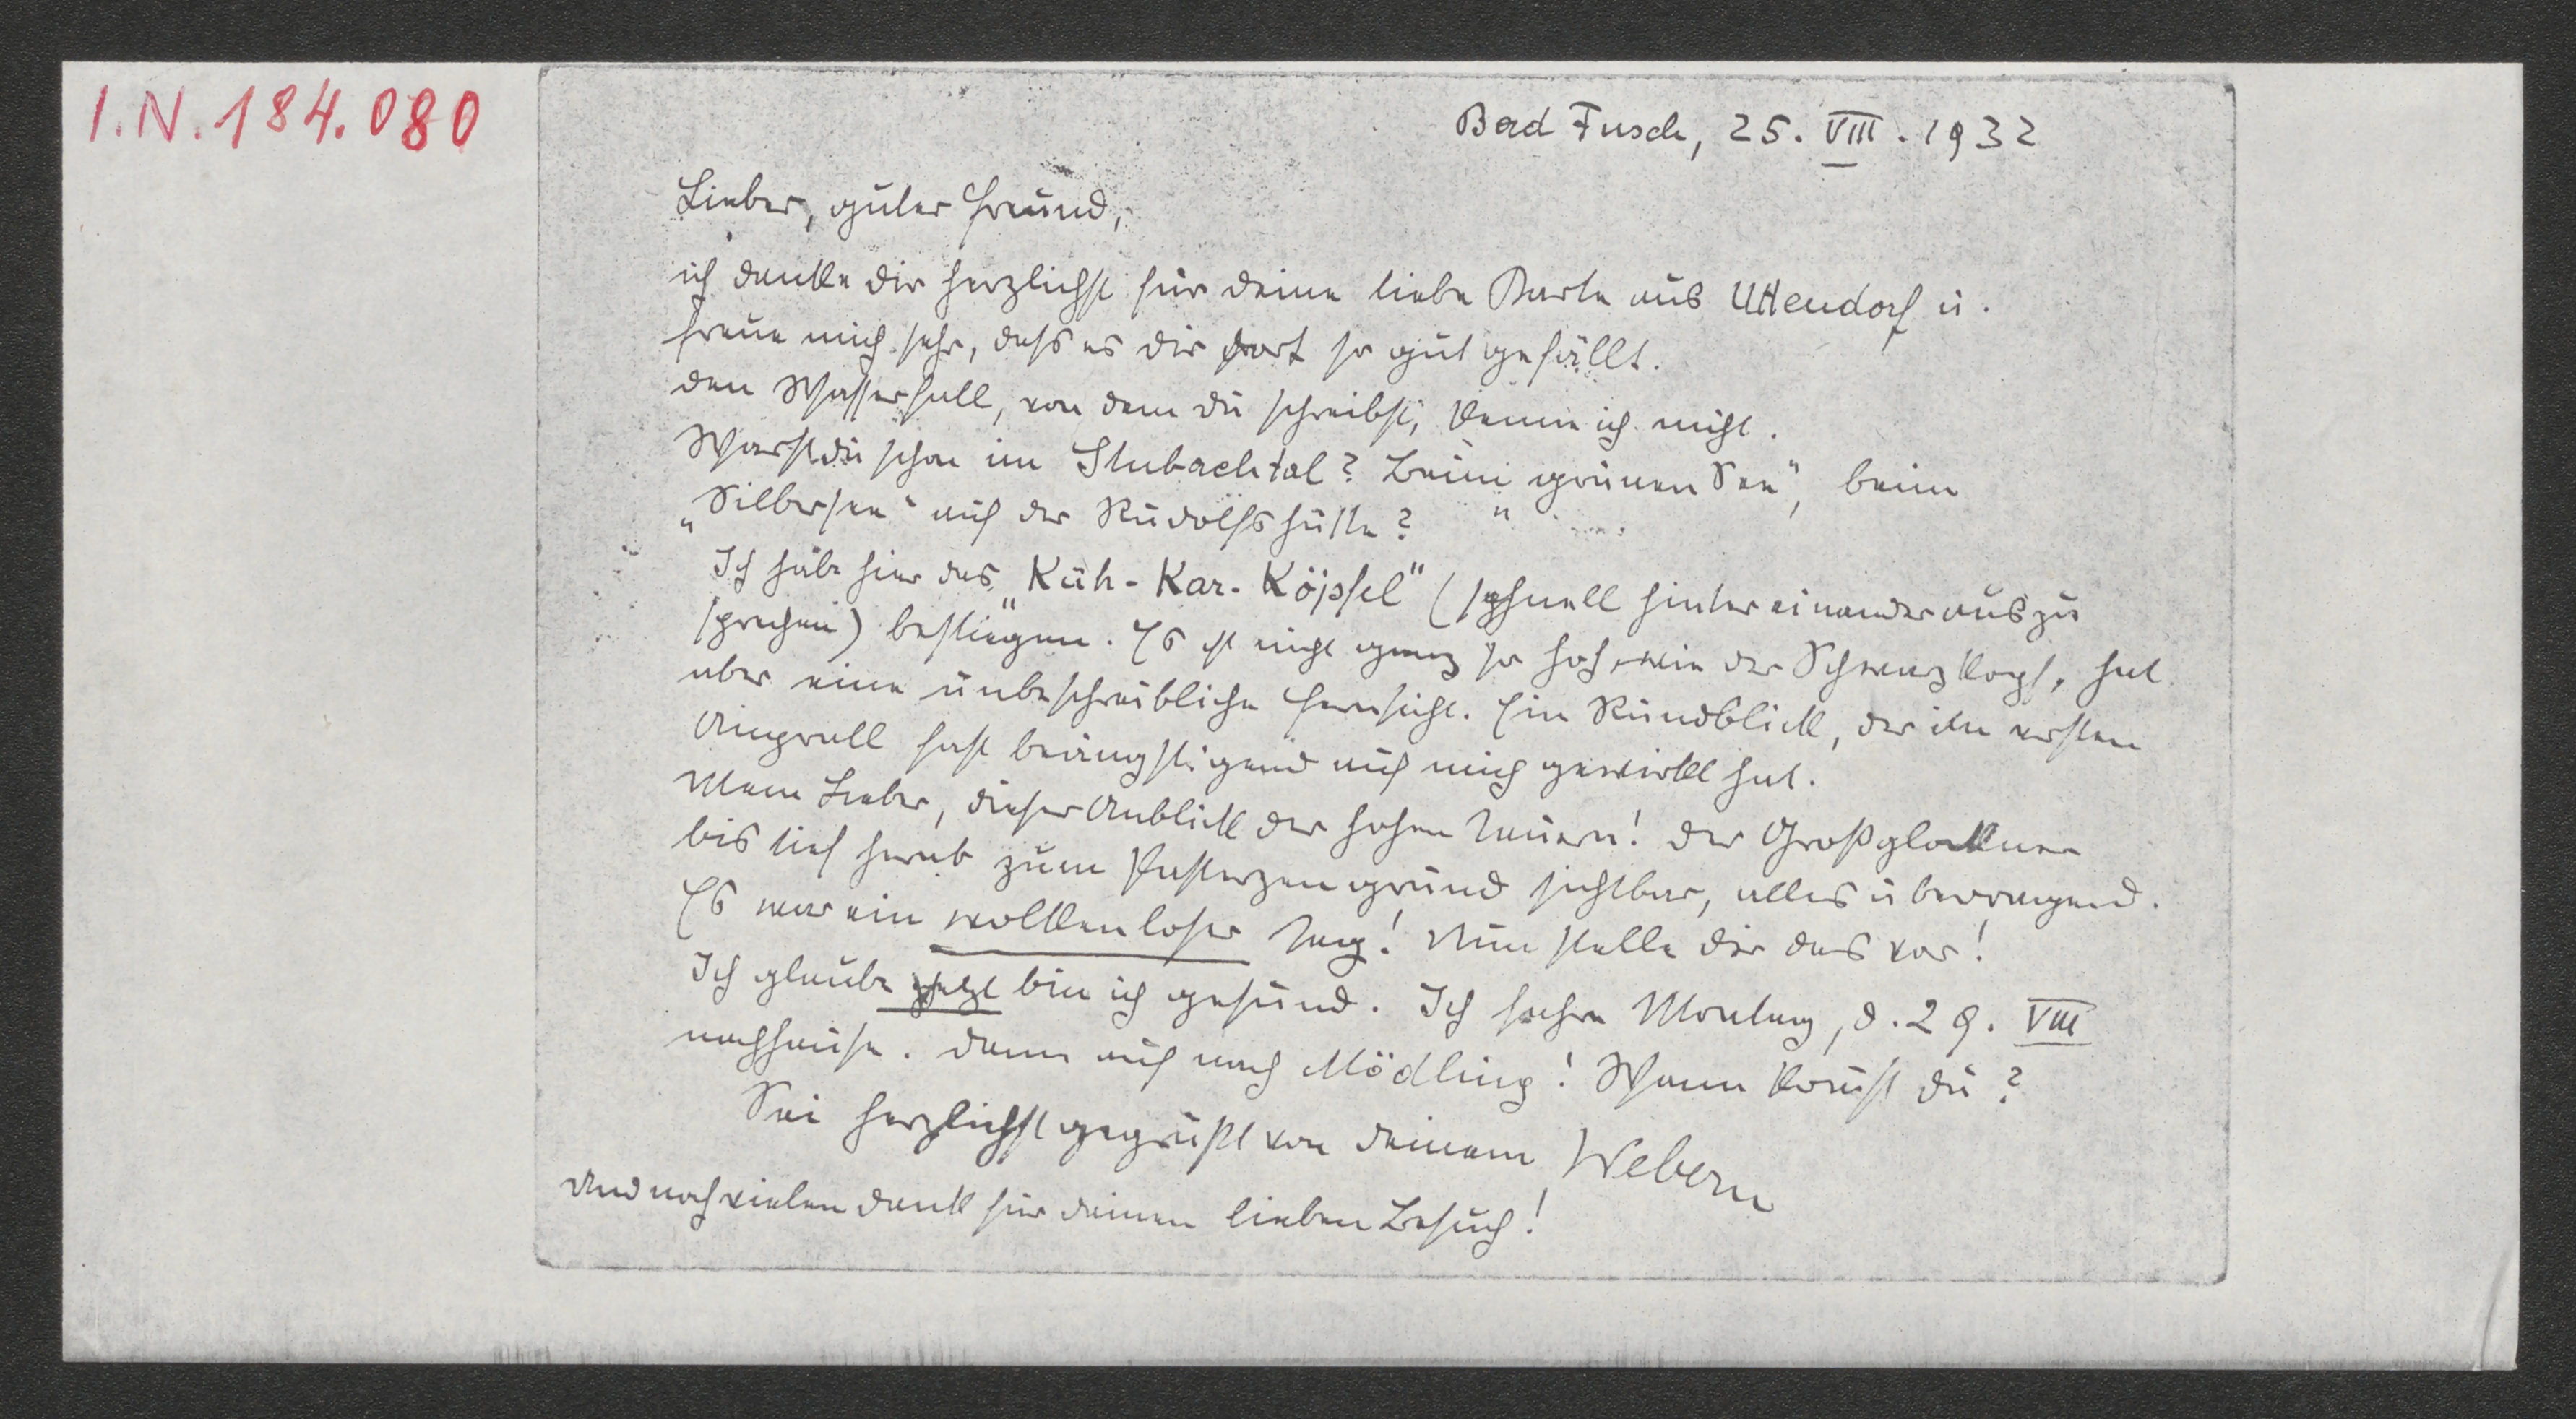 I.N. 184.080
Bad Fusch, 25. VIII. 1932
Lieber, guter Freund,
ich danke dir herzlichst für deine liebe Karte aus Uttendorf u.
freue mich sehr, dass es dir dort so gut gefällt.
Den Wasserfall, von dem du schreibst, kenne ich nicht.
Warst du schon im Stubachtal? Beim „grünen See“, beim
„Silbersee“ auf der Rudolfshütte?
Ich habe hier das „Küh-Kar-Köpfel“ (schnell hintereinander auszu
sprechen) bestiegen. Es ist nicht ganz so hoch, wie der Schwarzkopf, hat
aber eine unbeschreibliche Fernsicht. Ein Rundblick, der im ersten
Anprall fast beängstigend auf mich gewirkt hat.
Mein Lieber, dieser Anblick der hohen Tauern! Der Großglockner
bis tief herab zum Pasterzengrund sichtbar, alles überragend.
Es war ein wolkenloser Tag! Nun stelle dir das vor!
Ich glaube jetzt bin ich gesund. Ich fahre Montag, d. 29. VIII
nachhause. Dann auf nach Mödling! Wann kommst du?
Sei herzlichst gegrüßt von deinem Webern
Und noch vielen Dank für deinen lieben Besuch!